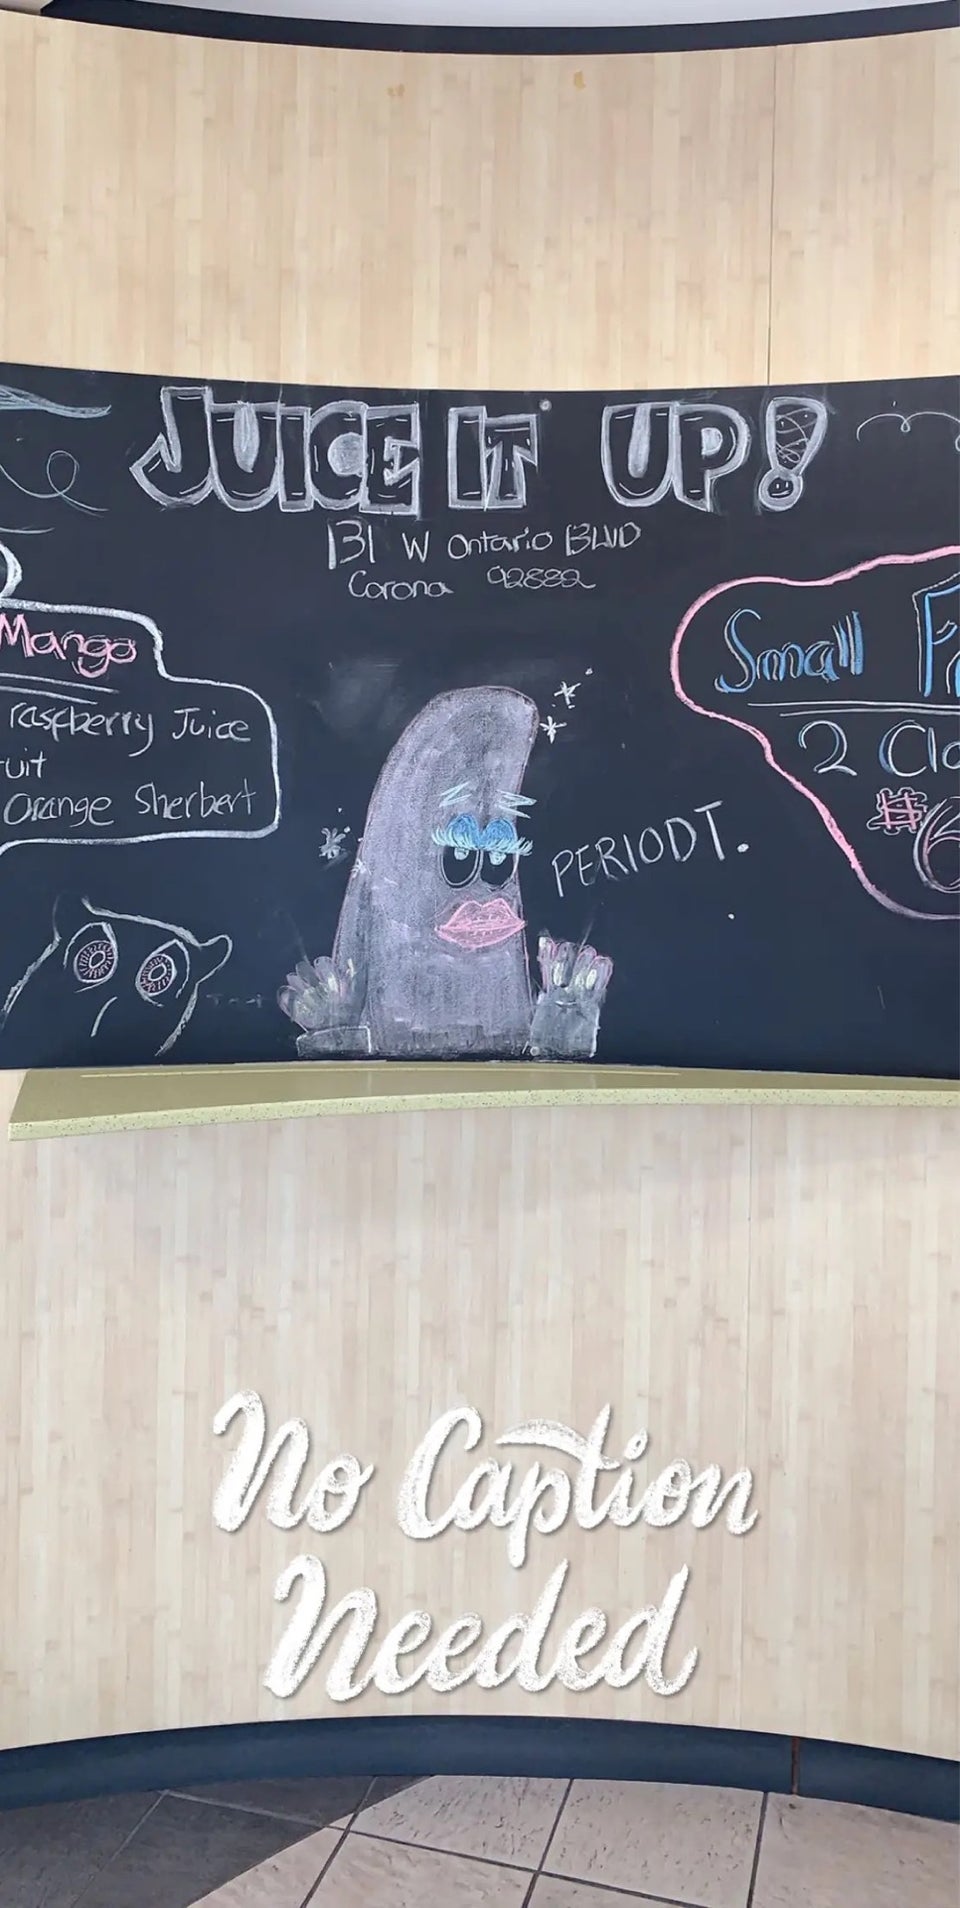 JUICE IT UP!
131 W Ontario BLVD
Corona 92882
Mango
raspberry Juice
Orange Sherbert
Small
2 Cla
#6
PERIODT.
No Caption
Needed